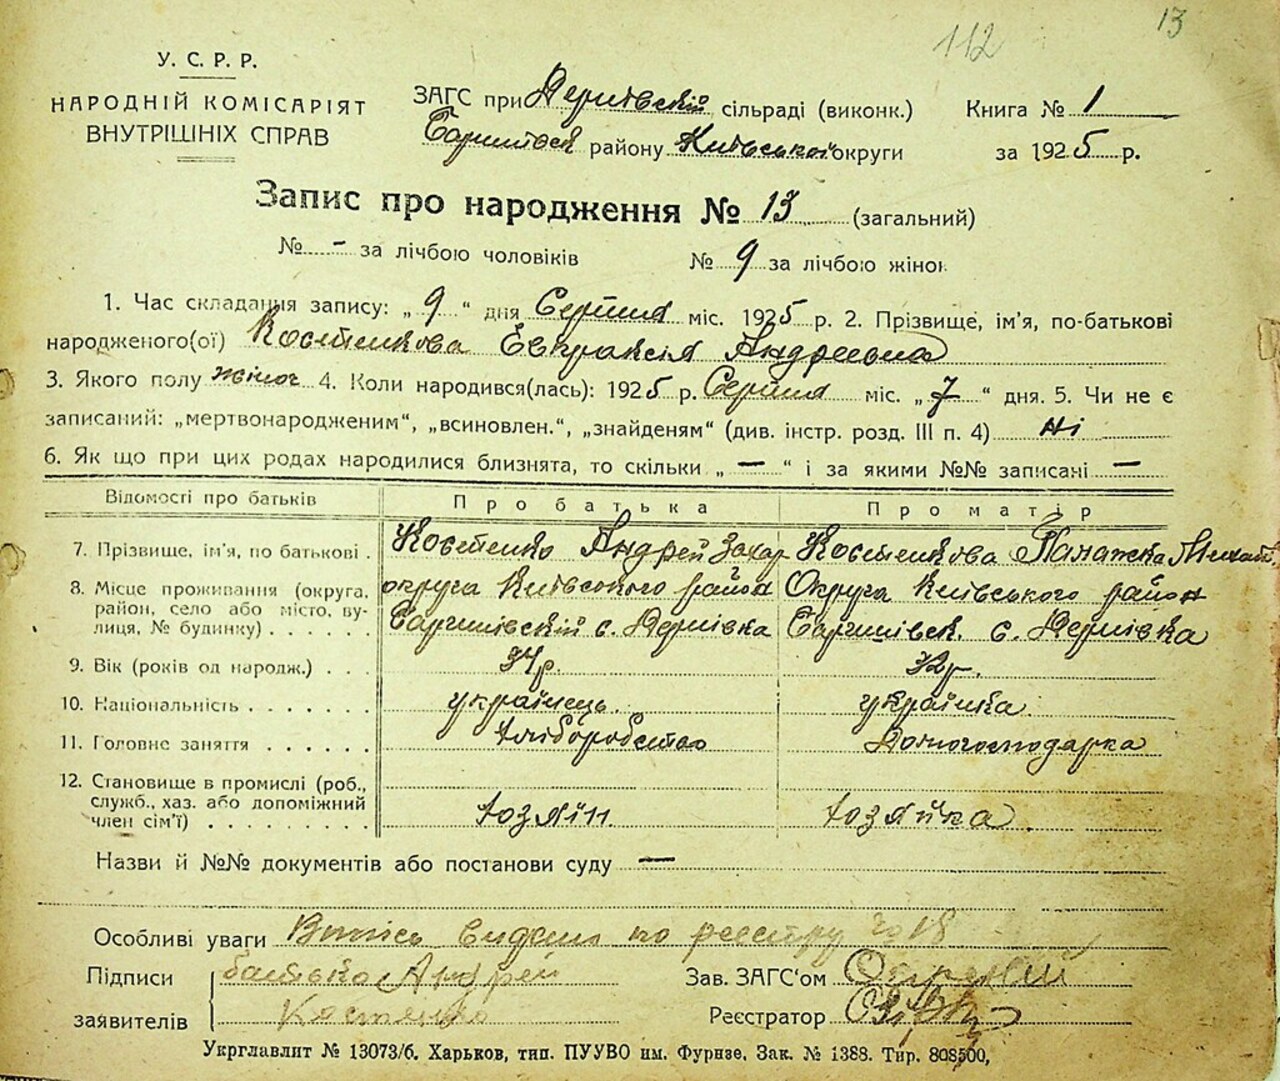 112
13
У. С. Р. Р.
НАРОДНІЙ КОМІСАРІЯТ
ВНУТРІШНІХ СПРАВ
ЗАГС при сільраді (виконк.)
району Київської округи
Книга № 1
за 1925 р.
Запис про народження № 13 (загальний)
№ - за лічбою чоловіків № 9 за лічбою жінок
1. Час складання запису: „ 9 “ дня Серпня міс. 1925 р. 2. Прізвище, ім'я, по-батькові
народженого(ої) Костенкова Евпраксія Андреевна
3. Якого полу жіноч 4. Коли народився(лась): 1925 р. Серпня міс. „ 7 “ дня. 5. Чи не є
записаний: „мертвонародженим“, „всиновлен.“, „знайденям“ (див. інстр. розд. III п. 4) ні
6. Як що при цих родах народилися близнята, то скільки „ — “ і за якими №№ записані —
Відомості про батьків Про батька Про матір
7. Прізвище, ім'я, по батькові . Костенко Андрей Захар Костенкова Палажка Михайл
8. Місце проживання (округа, район, село або місто, вулиця, № будинку) . . . . . . округа Київського район Округа Київського район
с. с.
9. Вік (років од народж.) . . . 34р. 32р.
10. Національність . . . . . . . українець. українка
11. Головне заняття . . . . . . Хліборобство Домогосподарка
12. Становище в промислі (роб.,
служб., хаз. або допоміжний
член сім'ї) . . . . . . . . . хозяїн хозяйка
Назви й №№ документів або постанови суду —
Особливі уваги Випись видана по реєстру № 18
Підписи батько Андрей Зав. ЗАГС'ом
заявителів Костенко Реєстратор
Укрглавлит № 13073/б. Харьков, тип. ПУУВО им. Фурнзе. Зак. № 1388. Тир. 808500,